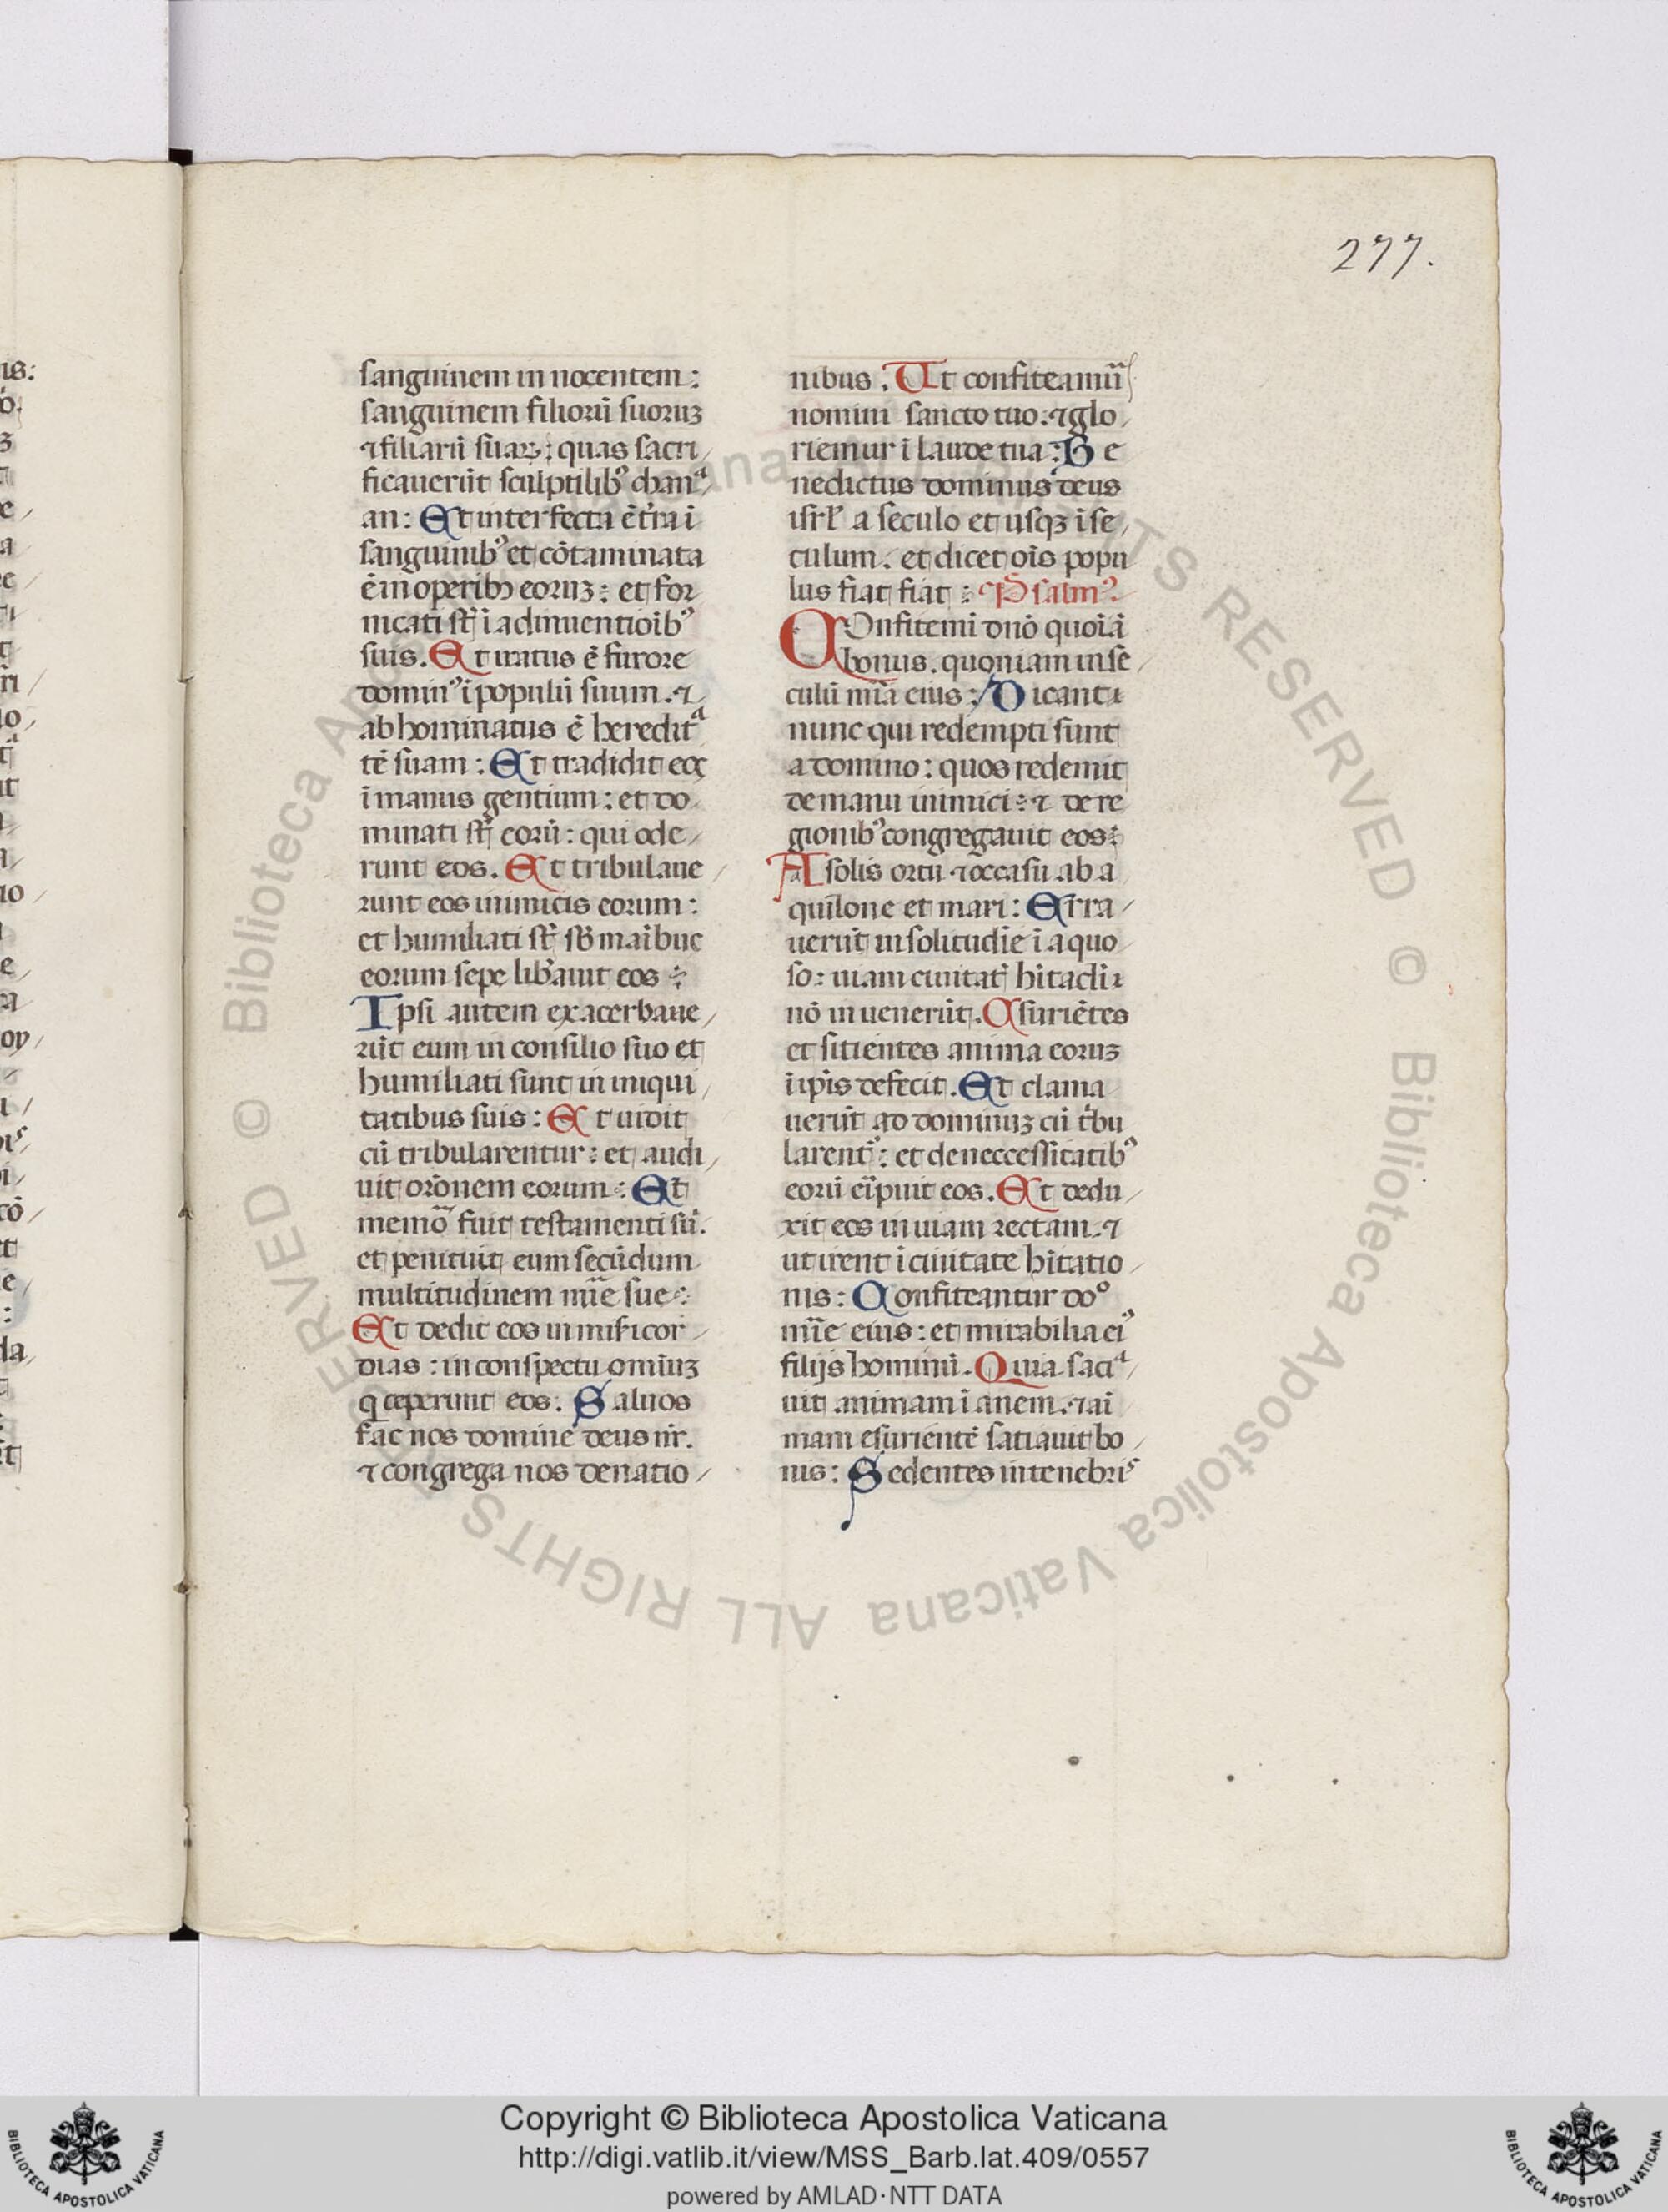 277.
sanguinem in nocentem:
sanguinem filiorū suoruꝫ
⁊filiarū suaꝝ: quas sacri
ficauerūt sculptilibꝰ chanᵃ
an: Et interfecta ē t̄ra ī
sanguinibꝰ et cōtaminata
ē in operibꝫ eoruꝫ: et for
nicati st̄ ī adinuentioībꝰ
suis. Et iratus ē furore
dominꝰ ī populū suum. ⁊
abhominatus ē hereditᵃ
tē suam: Et tradidit eoꝝ
ī manus gentium: et do
minati st̄ eorū: qui ode
runt eos. Et tribulaue
runt eos inimicis eorum:
et humiliati st̄ sb̄ maībuc
eorum sepe lib̄auit eos:
Ipsi autem exacerbaue
rūt eum in consilio suo et
humiliati sunt in iniqui
tatibus suis: Et uidit
cū tribularentur: et audi
uit orōnem eorum: Et
memō fuit testamenti sū.
et penituit eum secūdum
multitudinem mīe sue:
Et dedit eos in misicor
dias: in conspectu omīuꝫ
q ceperunt eos: Saluos
fac nos domine deus nr̄.
⁊ congrega nos de natio
nibus. Ut confiteamū
nomini sancto tuo. ⁊ glo
riemur ī laude tua: Be
nedictus dominus deus
isrl̄ a seculo et usqꝫ ī se
culum. et dicet oīs popu
lus fiat fiat: Psalmꝰ.
COnfitemī dnō quoīā
bonus. quoniam in sē
culū mīa eius: Dicant
nunc qui redempti sunt
a domino: quos redemit
de manu inimici: ⁊ de re
gionibꝰ congregauit eos:
A solis ortu ⁊ occasu ab a
quilone et mari: Erra
uerūt in solitudīe ī aquo
so: uiam ciuitatꝭ hītacłi
nō in uenerūt. Esuriētes
et sitientes anima eoruꝫ
ī ipīs defecit. Et clama
uerūt ad dominuꝫ cū tꝛ̄bu
larentꝰ: et de neccessitatibꝰ
eorū eīpuit eos. Et dedu
xit eos in uiam rectam. ⁊
ut irent ī ciuitate hītatio
nis: Confiteantur doᵒ
mīe eius: et mirabilia eiꝰ
filijs hominū. Quia saciᵃ
uit animam ī anem. ⁊ aī
mam esurientē satiauit bo
nis: Sedentes in tenebriˢ
Copyright © Biblioteca Apostolica Vaticana
http://digi.vatlib.it/view/MSS_Barb.lat.409/0557
powered by AMLAD·NTT DATA